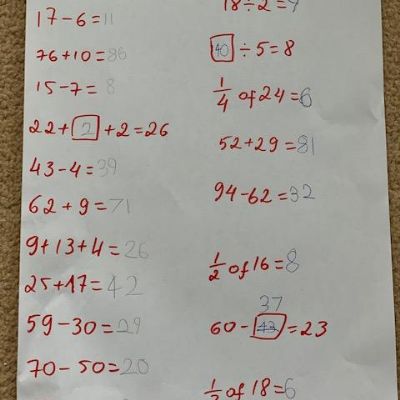 17-6=11
76+10=86
15-7=8
22+2+2=26
43-4=39
62+9=71
9+13+4=26
25+17=42
59-30=29
70-50=20
18÷2=9
40÷5=8
1/4 of 24=6
52+29=81
94-62=32
1/2 of 16=8
37
60-43=23
of 18=6